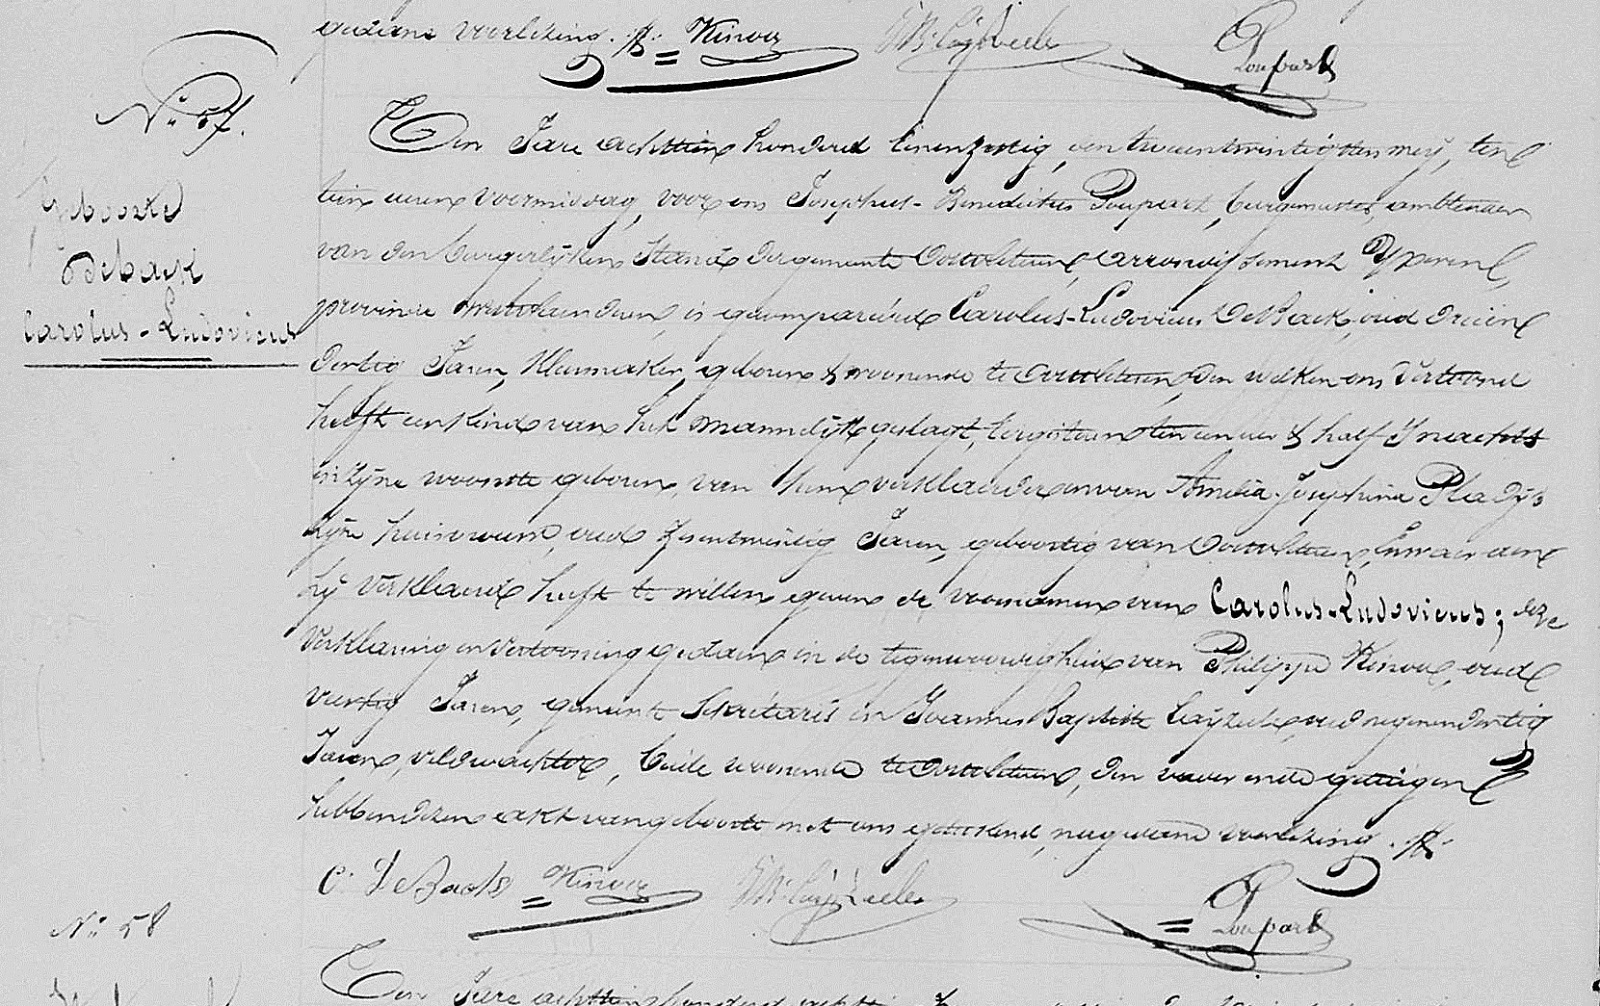 gedane voorlezing. Kinoo JB: Cuyzeele Poupart
N.º 57.
Geboorte
DeBack
Carolus-Ludovicus
Den Jare achttien honderd eenenzestig, den tweeentwintigsten meij, ten
tien uren voormiddag, voor ons Josephus-Benedictus Poupart, burgemeester, ambtenaer
van den burgerlijken Stand der gemeente arrondissement Yperen,
provincie Westvlaenderen, is gecompareerd Carolus-Ludovicus DeBack, oud drieen
dertig Jaren, kleermaker, geboren & woonende te den welken ons vertoond
heeft een kind van het mannelijk geslagt, eergisteren ten een uer & half S'nachts
in zijne woonste geboren, van hem verklaerder en van Amelia-Josephina Pladijs
zijne huisvrouw, oud zesentwintig Jaren, geboortig van en waer aen
hij verklaerd heeft te willen geven de voornamen van Carolus-Ludovicus; deze
verklaring en vertooning gedaen in de tegenwoordigheid van Philippe Kinoo, oud
veertig Jaren, gemeente Secretaris en Joannes Baptiste Cuyzeele, oud negenendertig
Jaren, veldwachter, beide woonende te den vader en de getuigen
hebben dezen akt van geboorte met ons geteekend, na gedane voorlezing.
C: L DeBack Kinoo JB: Cuyzeele Poupart
N.º 58
Den Jare achttien honderd